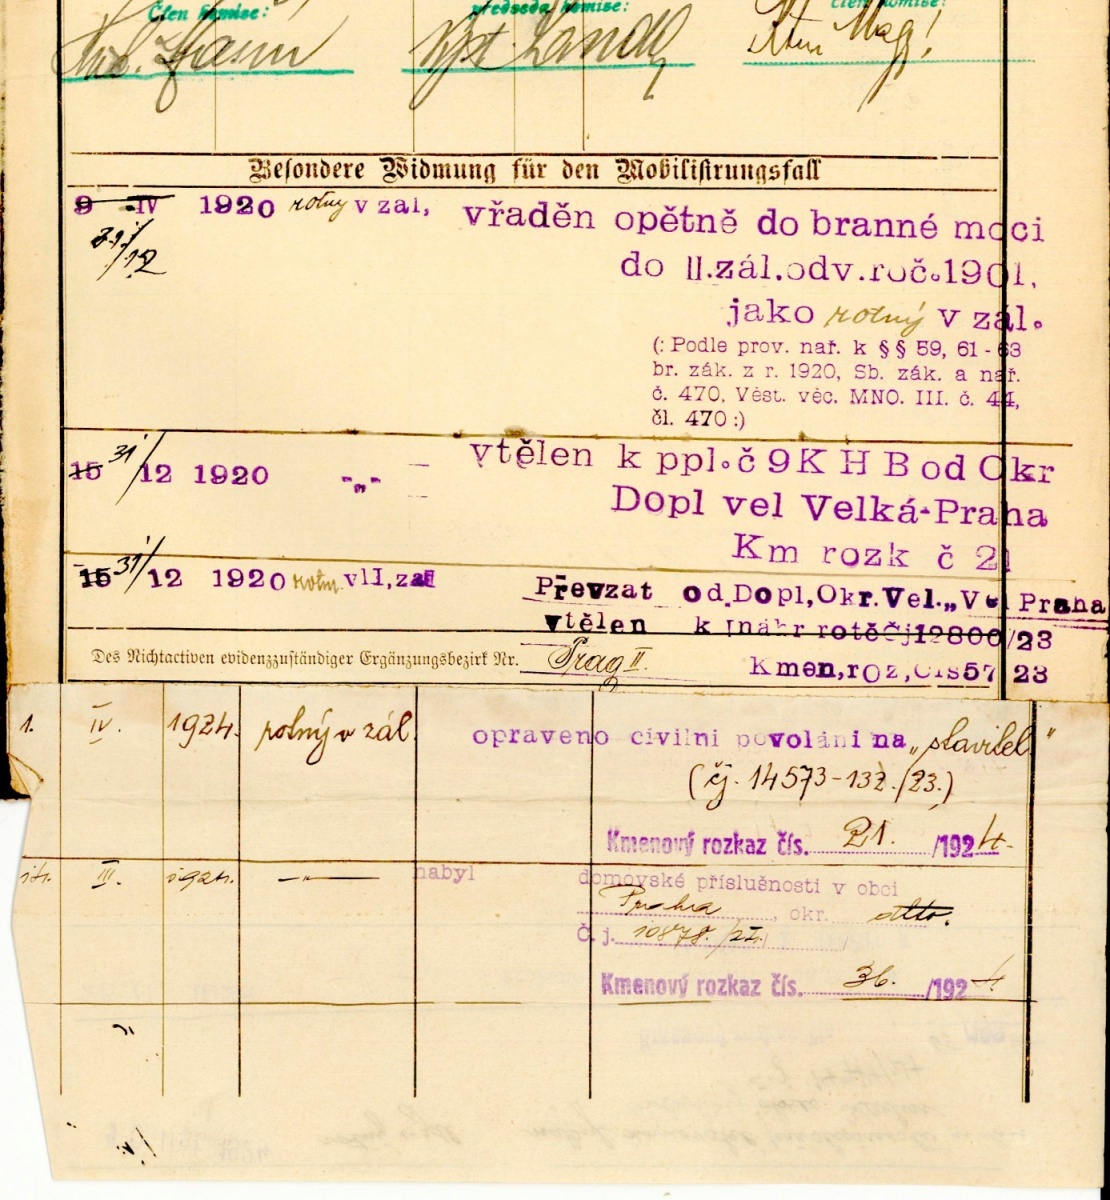 Člen komise: předseda komise: člen komise:
Besondere Widmung für den Mobilisirungsfall
9 IV 1920 rotný v zál, vřaděn opětně do branné moci
31/12 do II.zál.odv.roč.1901,
jako rotný v zál.
(: Podle prov. nař. k §§ 59, 61-63
br. zák. z r. 1920, Sb. zák. a nař.
č. 470, Věst. věc. MNO. III. č. 44,
čl. 470 :)
15 31/12 1920 „ vtělen k ppl.č 9 K H B od Okr
Dopl vel Velká-Praha
Km rozk č 21
15 31/12 1920 rotn. v II, zál Převzat od.Dopl,Okr.Vel.„Vel Praha
vtělen k Ináhr rotěčj12800/23
Des Nichtactiven evidenzzuständiger Ergänzungsbezirk Nr. Prag II. Kmen,roz,čís57 23
1. IV. 1924. rotný v zál. opraveno civilní povolání na „stavitel"
(čj. 14573-132./23.)
Kmenový rozkaz čís. 21. /1924.
III. 1924. —„— nabyl domovské příslušnosti v obci
Praha, okr. dtto.
Č. j. 10878./II.
Kmenový rozkaz čís. 36. /1924